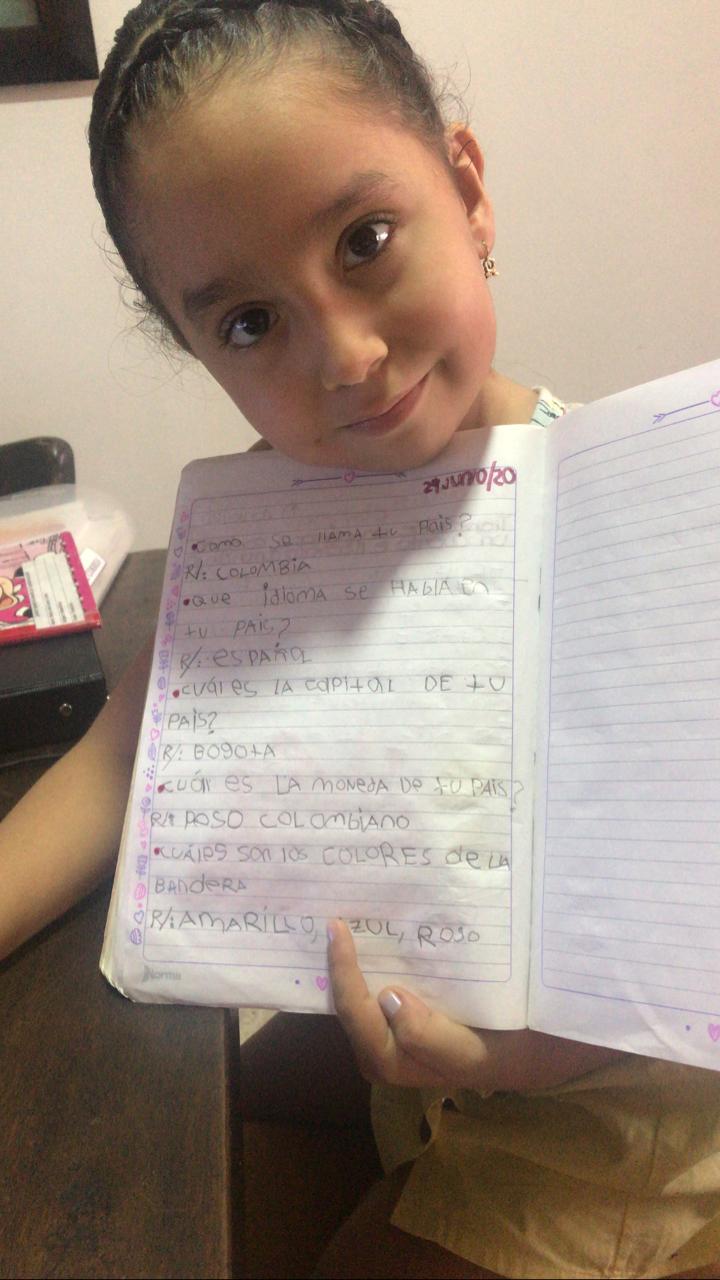 02/Junio/25
•como se llama tu Pais?
R/: COLOMBIA
•que idioma se HABla En
tu PAIS?
R/: eSPAÑOL
•cuál es LA capital DE tU
PAÍS?
R/: BOGOtA
•cuál es LA moneda De tU PAIS?
R/: POSO COLOmbiANO
•cuáles son los COLORES de LA
BANdeRA
R/: AMARILLO, AZUL, ROSO
Norma